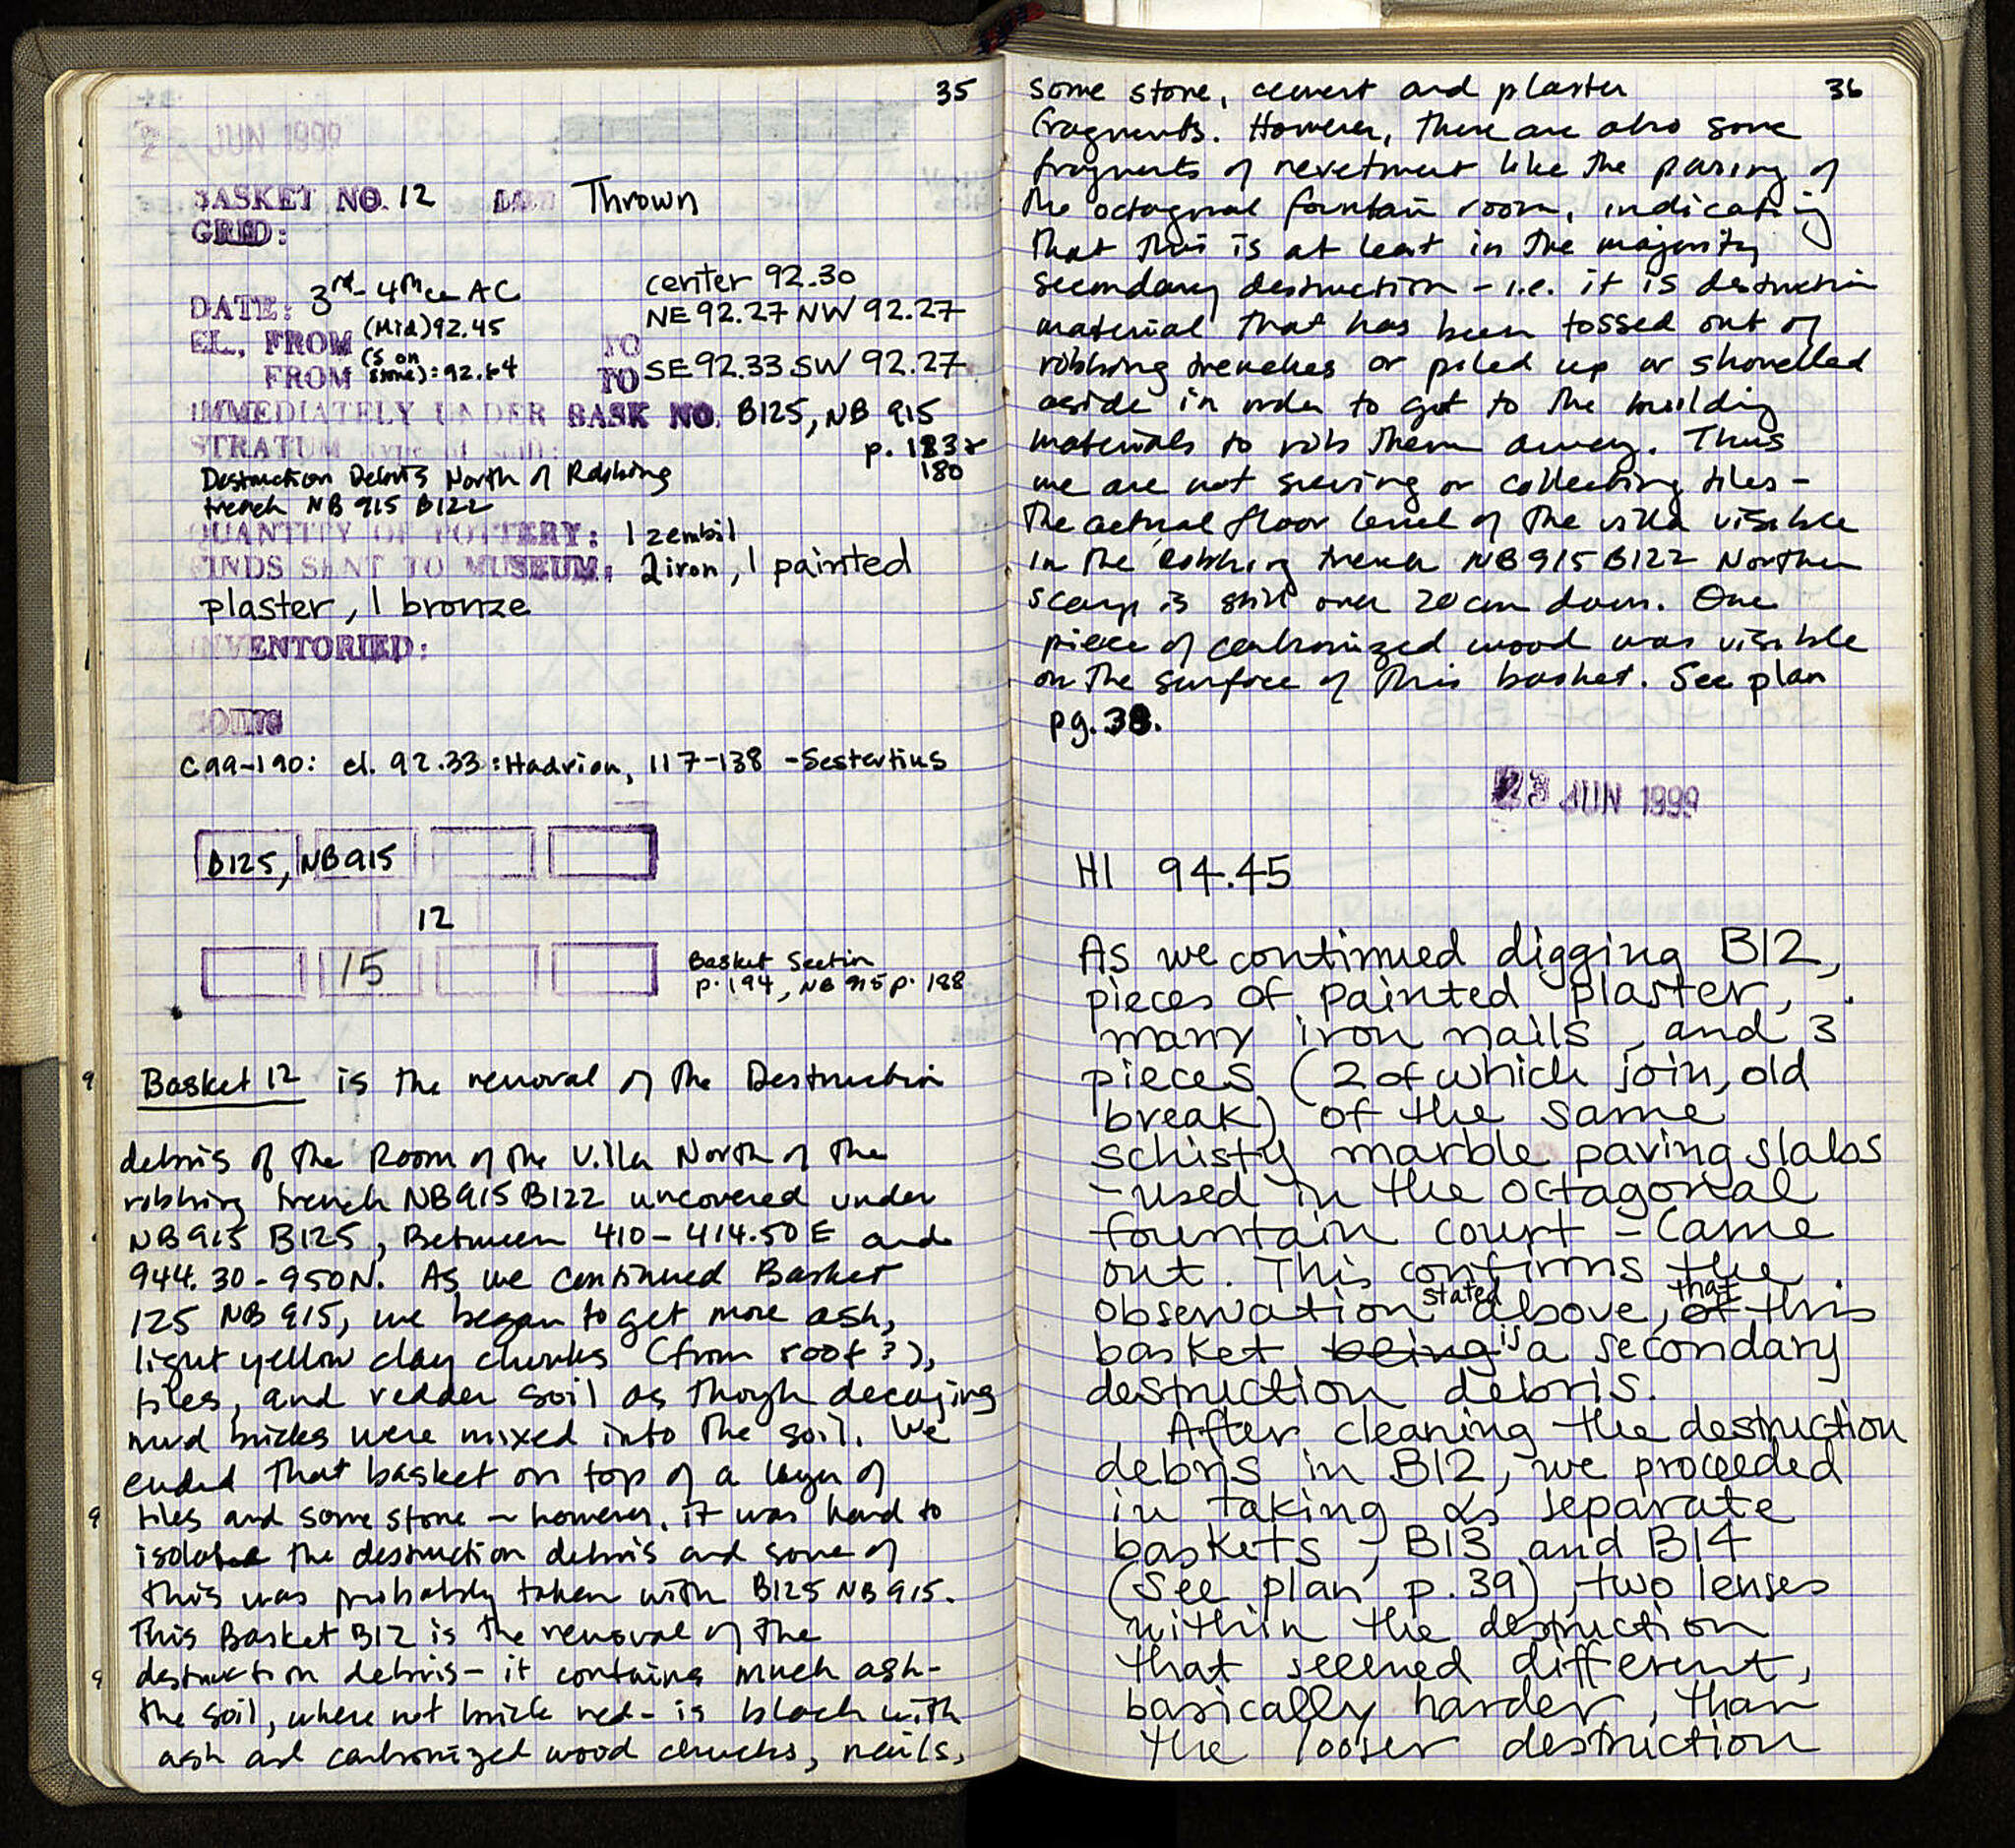 35
2 JUN 1999
BASKET NO. 12 LOT Thrown
GRID:
DATE: 3rd-4th ce AC
EL. FROM (Mid) 92.45 TO center 92.30
NE 92.27 NW 92.27
FROM (S on stone): 92.64 TO SE 92.33 SW 92.27
IMMEDIATELY UNDER BASK NO. B125, NB 915
p. 183+
180
STRATUM (type of soil):
Destruction Debris North of Robbing
trench NB 915 B122
QUANTITY OF POTTERY: 1 zembil
FINDS SENT TO MUSEUM: 2 iron, 1 painted
plaster, 1 bronze
INVENTORIED:
COINS
C99-190: el. 92.33: Hadrian, 117-138 -Sestertius
B125, NB915
12
15
Basket Section
p. 194, NB 915 p. 188
Basket 12 is the removal of the Destruction
debris of the Room of the Villa North of the
robbing trench NB915 B122 uncovered under
NB915 B125, Between 410-414.50E and
944.30-950N. As we continued Basket
125 NB 915, we began to get more ash,
light yellow clay chunks (from roof?),
tiles, and redder soil as though decaying
mud bricks were mixed into the soil. We
ended that basket on top of a layer of
tiles and some stone - however, it was hard to
isolate the destruction debris and some of
this was probably taken with B125 NB 915.
This Basket B12 is the removal of the
destruction debris - it contains much ash-
the soil, where not brick red - is black with
ash and carbonized wood chucks, nails,
36
some stone, cement and plaster
fragments. However, there are also some
fragments of revetment like the paving of
the octagonal fountain room, indicating
that this is at least in the majority
secondary destruction - i.e. it is destruction
material that has been tossed out of
robbing trenches or piled up or shovelled
aside in order to get to the building
materials to rob them away. Thus
we are not sieving or collecting tiles -
the actual floor level of the villa visible
in the Robbing trench NB915 B122 Northern
scarp is still over 20 cm down. One
piece of carbonized wood was visible
on the surface of this basket. See plan
pg. 38.
23 JUN 1999
HI 94.45
As we continued digging B12,
pieces of painted plaster,
many iron nails, and 3
pieces (2 of which join, old
break) of the same
schisty marble paving slabs
-used in the octagonal
fountain court - came
out. This confirms the
observation stated above, of that this
basket being is a secondary
destruction debris.
After cleaning the destruction
debris in B12, we proceeded
in taking as separate
baskets, B13 and B14
(see plan p. 39), two lenses
within the destruction
that seemed different,
basically harder, than
the looser destruction